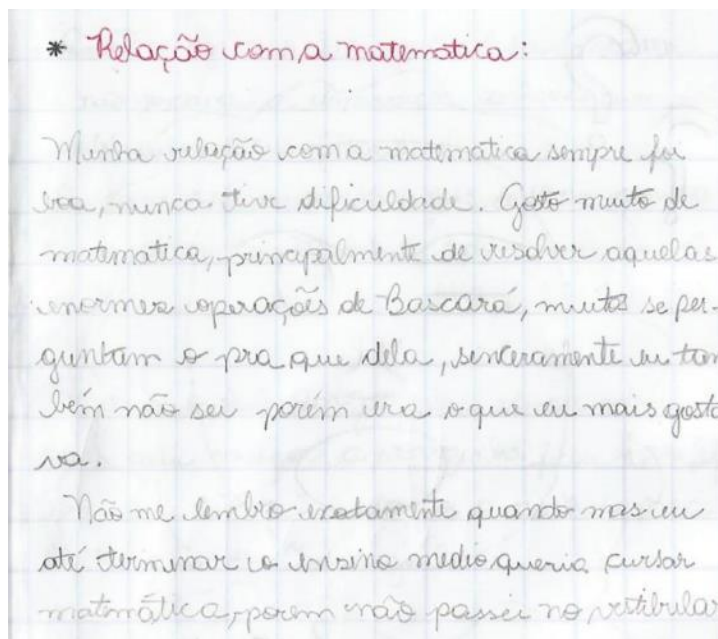 * Relação com a matematica:
Minha relação com a matematica sempre foi
boa, nunca tive dificuldade. Gosto muito de
matematica, principalmente de resolver aquelas
enormes operações de Bascará, muitos se per-
guntam o pra que dela, senceramente eu tam
bém não sei porém era o que eu mais gosta
va.
Não me lembro exatamente quando mas eu
até terminar o ensino medio queria cursar
matemática, porem não passei no vestibular